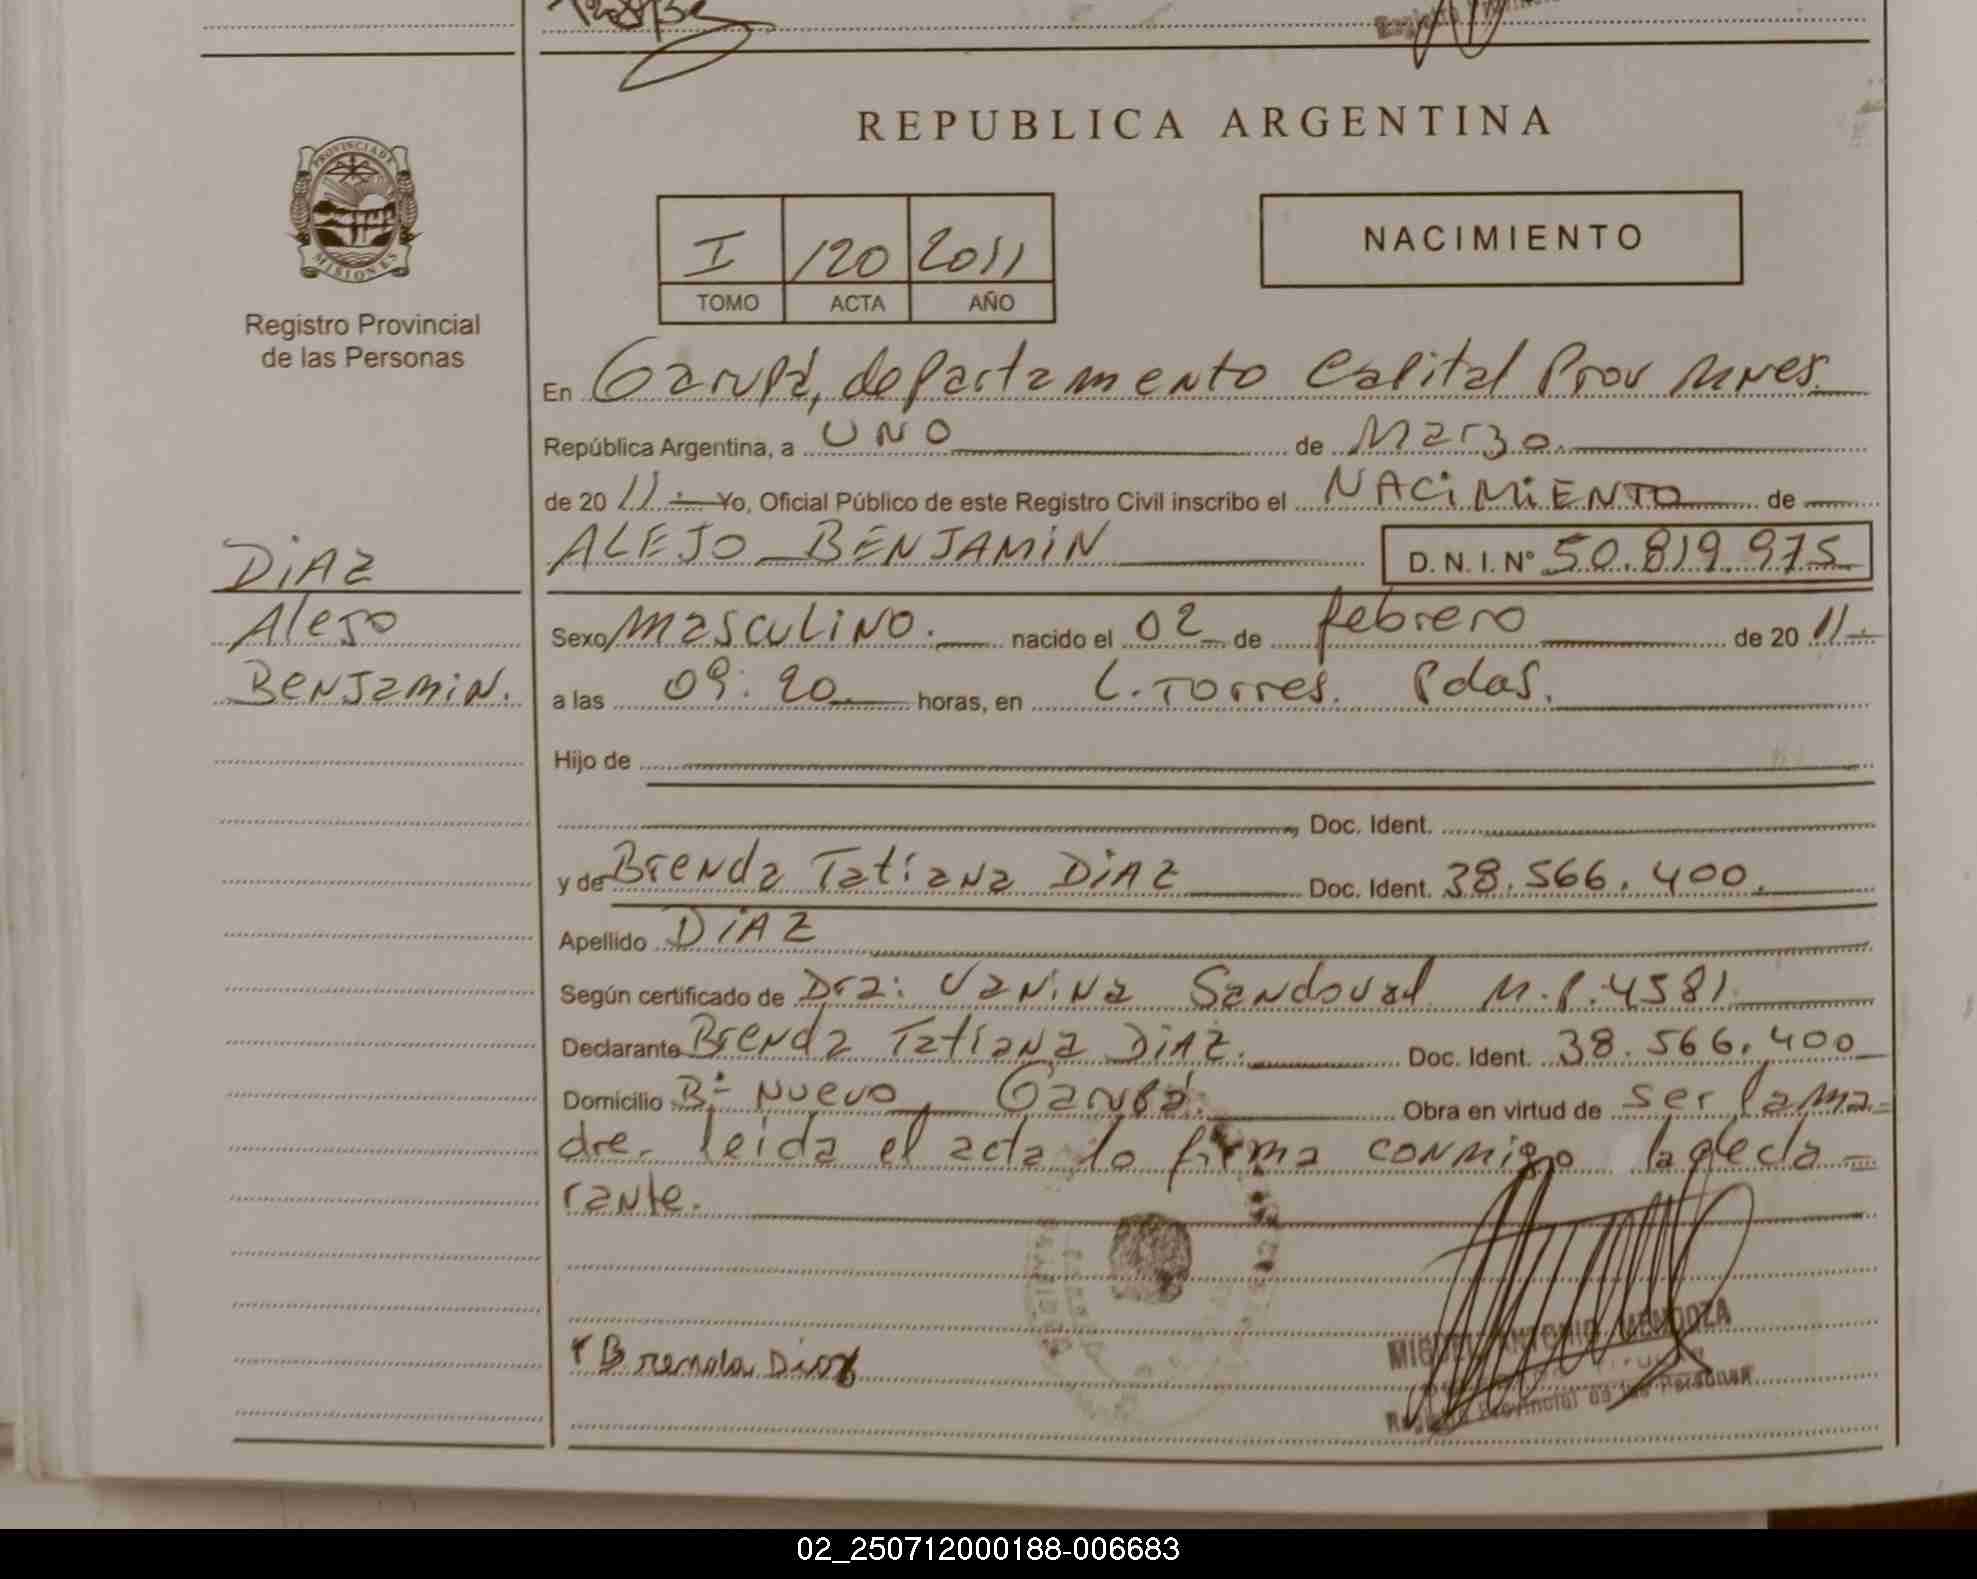 REPUBLICA ARGENTINA
PROVINCIA DE
MISIONES
Registro Provincial
de las Personas
I 120 2011
TOMO ACTA AÑO
NACIMIENTO
En Garupá, departamento Capital Prov Mnes.
República Argentina, a UNO de Marzo.
de 20 11.- Yo, Oficial Público de este Registro Civil inscribo el NACIMIENTO de
ALEJO BENJAMIN D. N. I. Nº 50.819.975
DIAZ
Alejo
Benjamin.
Sexo masculino. nacido el 02 de febrero de 20 11.-
a las 09:20 horas, en L. Torres. Pdas.
Hijo de
Doc. Ident.
y de Brenda Tatiana DIAZ Doc. Ident. 38.566.400.
Apellido DIAZ
Según certificado de Dra: Vanina Sandoval M.P. 4581.
Declarante Brenda Tatiana DIAZ. Doc. Ident. 38.566.400
Domicilio Bº Nuevo Garupá. Obra en virtud de ser la ma-
dre. leida el acta lo firma conmigo la decla-
rante.
Brenda Diaz
MIGUEL ANTONIO MENDOZA
Registro Provincial de las Personas
02_250712000188-006683